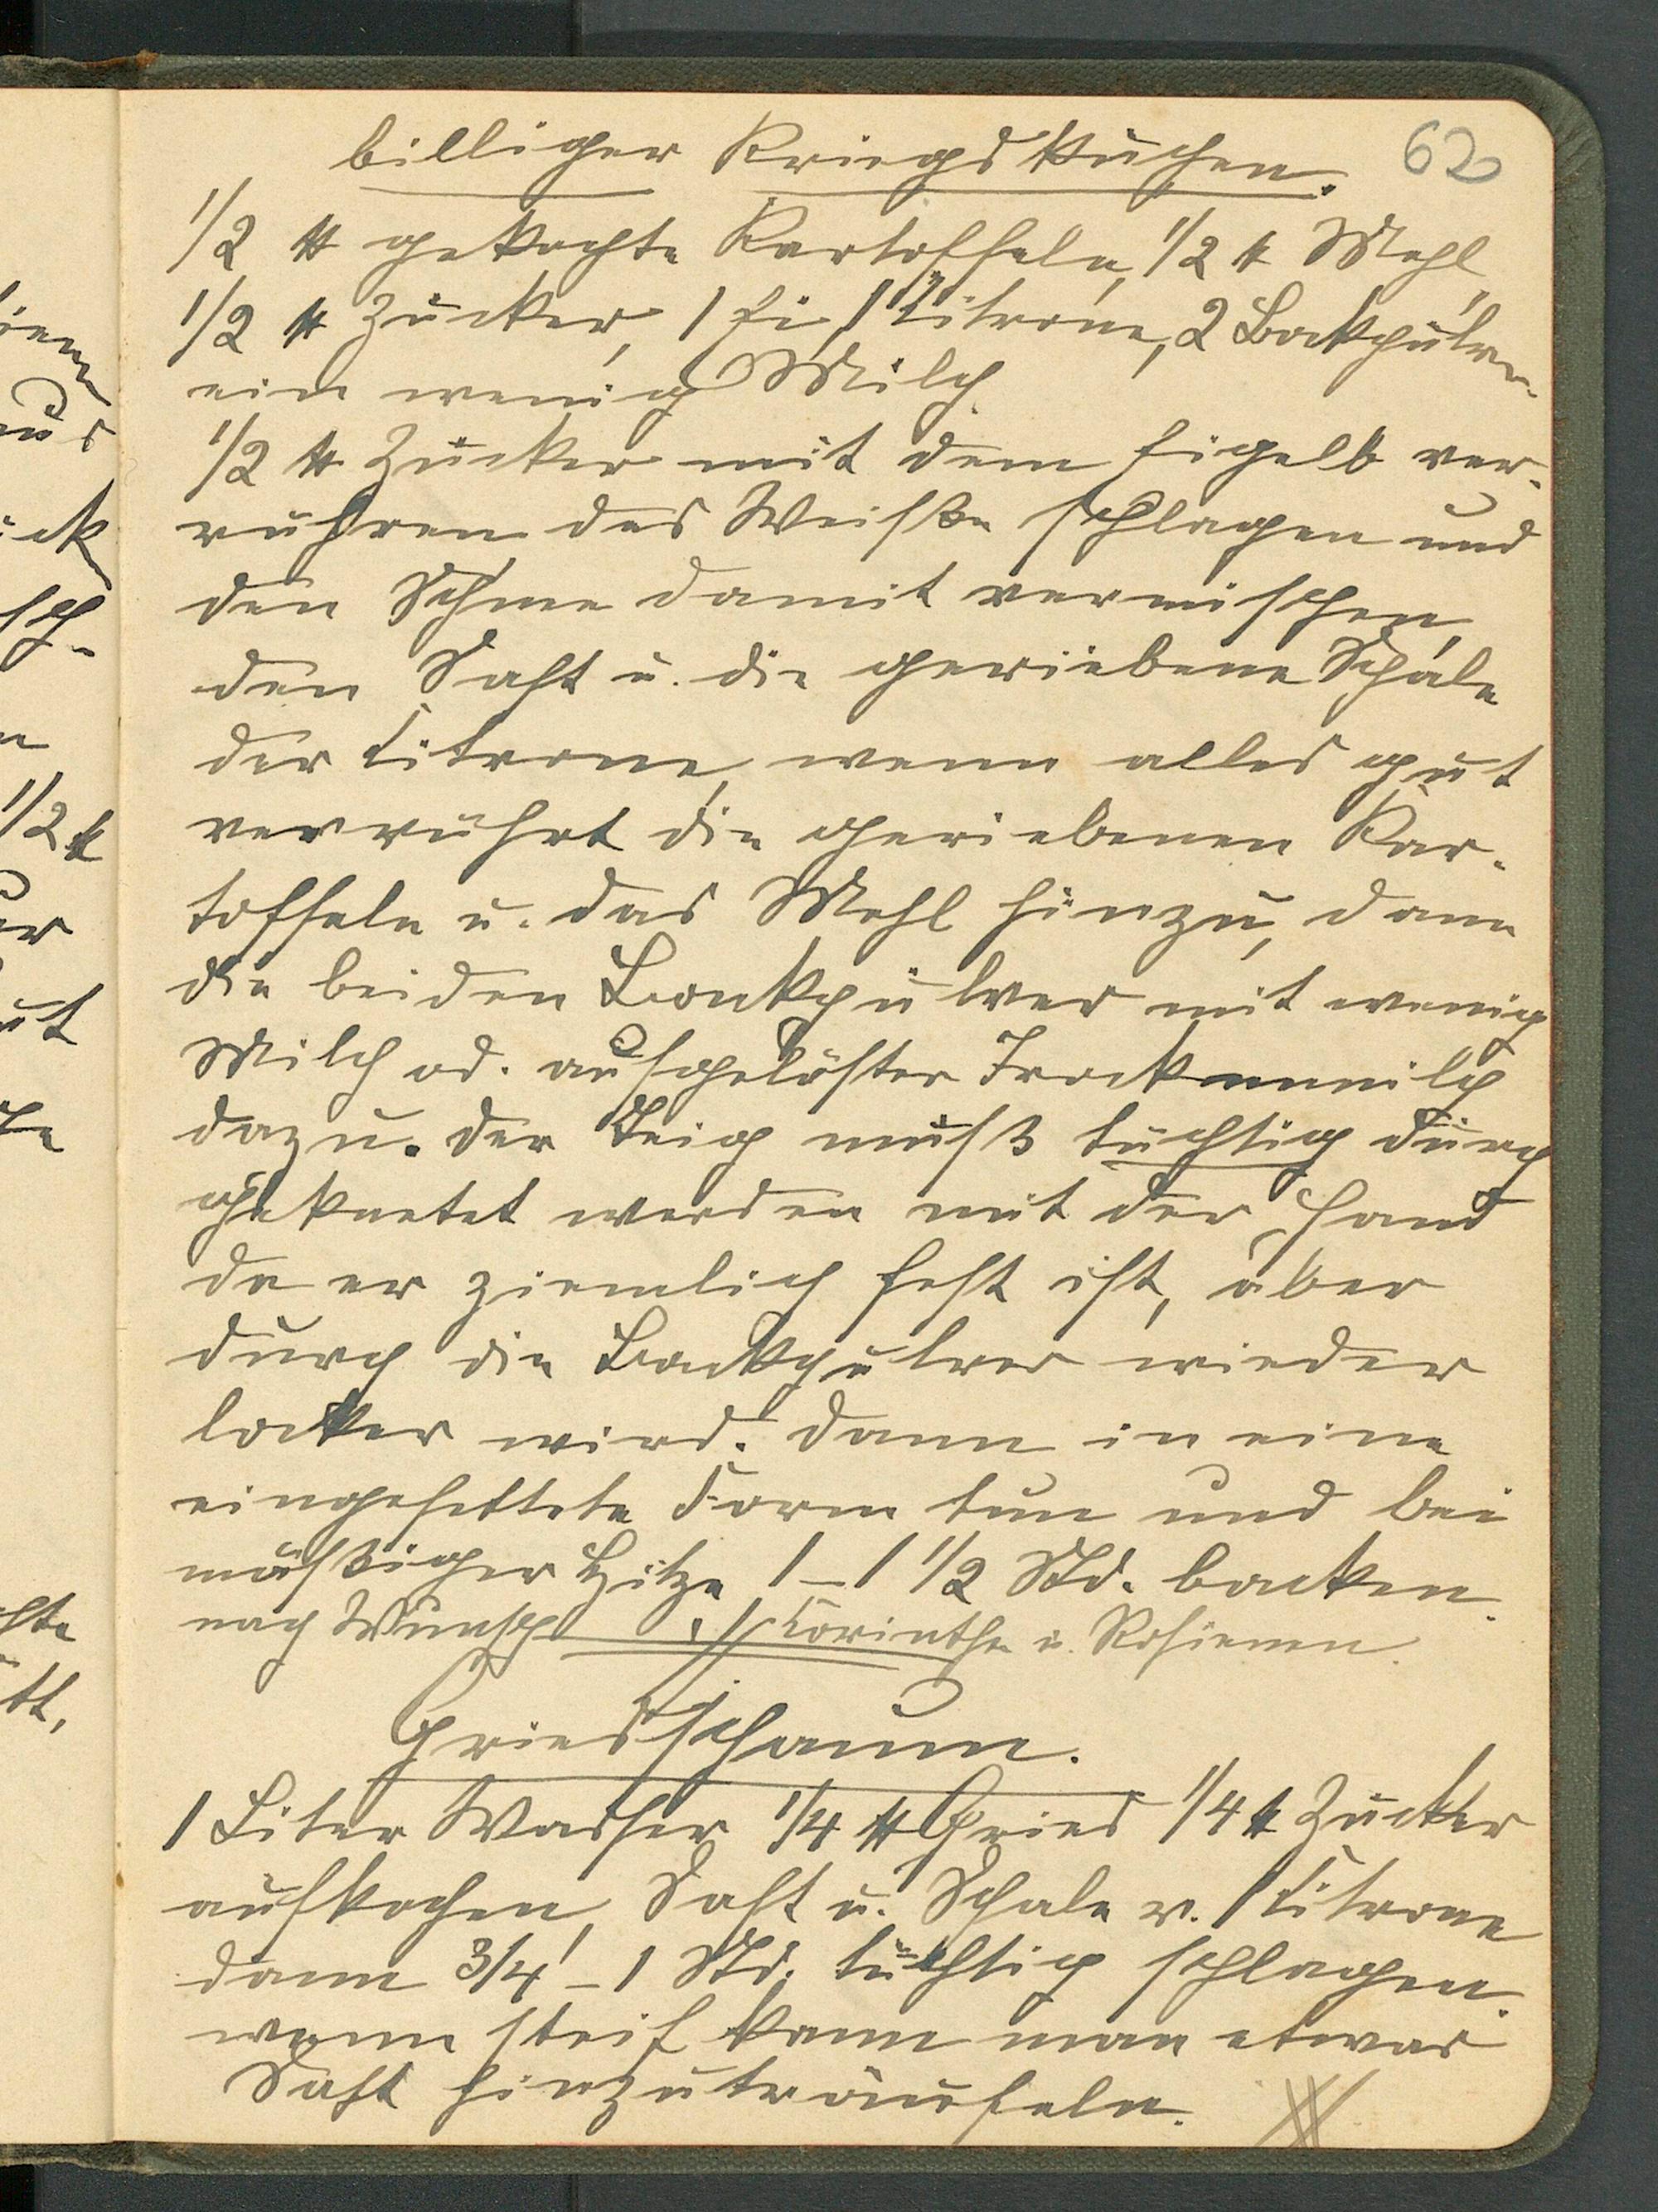 billiger Kriegskuchen. 62
1/2 ℔ gekochte Kartoffeln, 1/2 ℔ Mehl,
1/2 ℔ Zucker, 1 Ei, 1 Citrone, 2 Backpulver
ein wenig Milch.
1/2 ℔ Zucker mit dem Eigelb ver-
rühren das Weiße schlagen und
den Schnee damit vermischen,
den Saft u. die geriebene Schale
der Citrone, wenn alles gut
verrührt die geriebenen Kar-
toffeln u. das Mehl hinzu, dann
die beiden Backpulver mit wenig
Milch od. aufgelöster Trockenmilch
dazu. Der Teig muß tüchtig durch
geknetet werden mit der Hand
da er ziemlich fest ist, aber
durch die Backpulver wieder
locker wird. Dann in eine
eingefettete Form tun und bei
mäßiger Hitze 1 – 1 1/2 Std. backen.
nach Wunsch Korinthe u. Rosienen.
Griesschaum.
1 Liter Wasser 1/4 ℔ Gries 1/4 ℔ Zucker
aufkochen, Saft u. Schale v. 1 Citrone
dann 3/4 – 1 Std. tüchtig schlagen.
wenn steif kann man etwas
Saft hinzuträufeln.